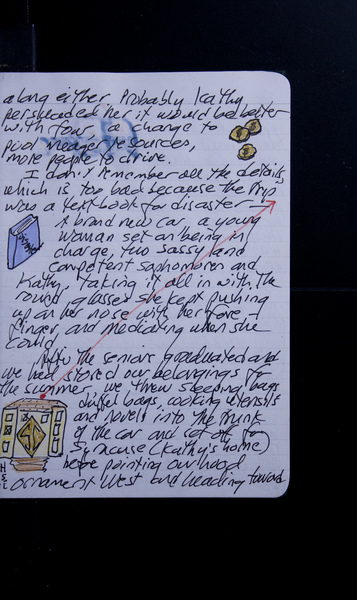 along either. Probably Kathy
persuaded her it would be better
with four, a change to
pool meager resources,
more people to drive.
I don't remember all the details,
which is too bad because the trip
was a textbook for disaster—
A brand new car, a young
woman set on being in
charge, two sassy and
competent sophomores and
Kathy, taking it all in with the
round glasses she kept pushing
up on her nose with her fore-
finger, and mediating when she
could.
After the seniors graduated and
we had stored our belongings for
the summer, we threw sleeping bags
duffel bags, cooking utensils
and novels into the trunk
of the car and set off for
Syracuse (Kathy's home)
before pointing our hood
ornament West and heading toward